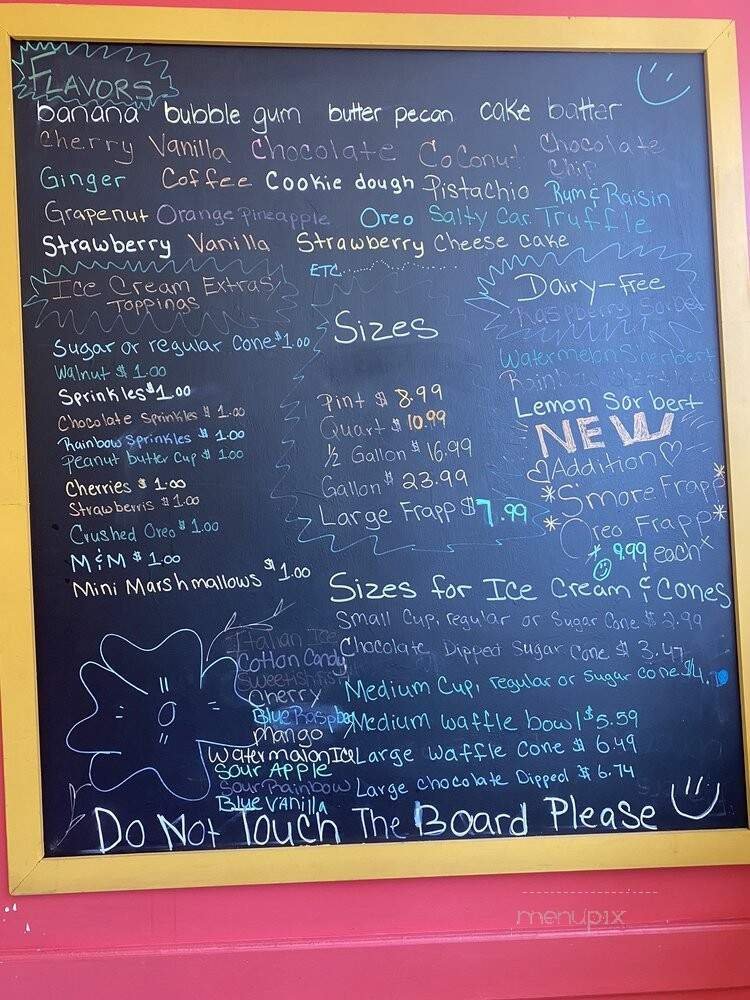 FLAVORS
banana bubble gum butter pecan cake batter
Cherry Vanilla Chocolate Coconut Chocolate Chip
Ginger Coffee Cookie dough Pistachio Rum & Raisin
Grapenut Orange Pineapple Oreo Salty Car. Truffle
Strawberry Vanilla Strawberry Cheese cake
ETC.
Ice Cream Extras
TOPPINGS
Sugar or regular cone $1.00
Walnut $ 1.00
Sprinkles $1.00
Chocolate Sprinkles $ 1.00
Rainbow Sprinkles $ 1.00
Peanut butter Cup $ 1.00
Cherries $ 1.00
Strawberris $ 1.00
Crushed Oreo $ 1.00
M & M $ 1.00
Mini Marshmallows $1.00
Sizes
Pint $ 8.99
Quart $ 10.99
1/2 Gallon $ 16.99
Gallon $ 23.99
Large Frapp $7.99
Dairy-Free
Raspberry Sorbet
Watermelon Sherbert
Lemon Sorbert
NEW
♡Addition♡
*S'more Frapp*
*Oreo Frapp*
* 9.99 each*
Sizes for Ice Cream & Cones
Small Cup, regular or Sugar Cone $ 2.99
Chocolate Dipped Sugar Cone $ 3.47
Medium Cup, regular or Sugar cone $4.
Medium waffle bowl $5.59
Large Waffle Cone $ 6.49
Large chocolate Dipped $ 6.74
Italian Ice
Cotton Candy
Cherry
Blue Raspbe
mango
WatermalonIce
Sour Apple
Sour Rainbow
Blue Vanilla
Do Not Touch The Board Please
menupix